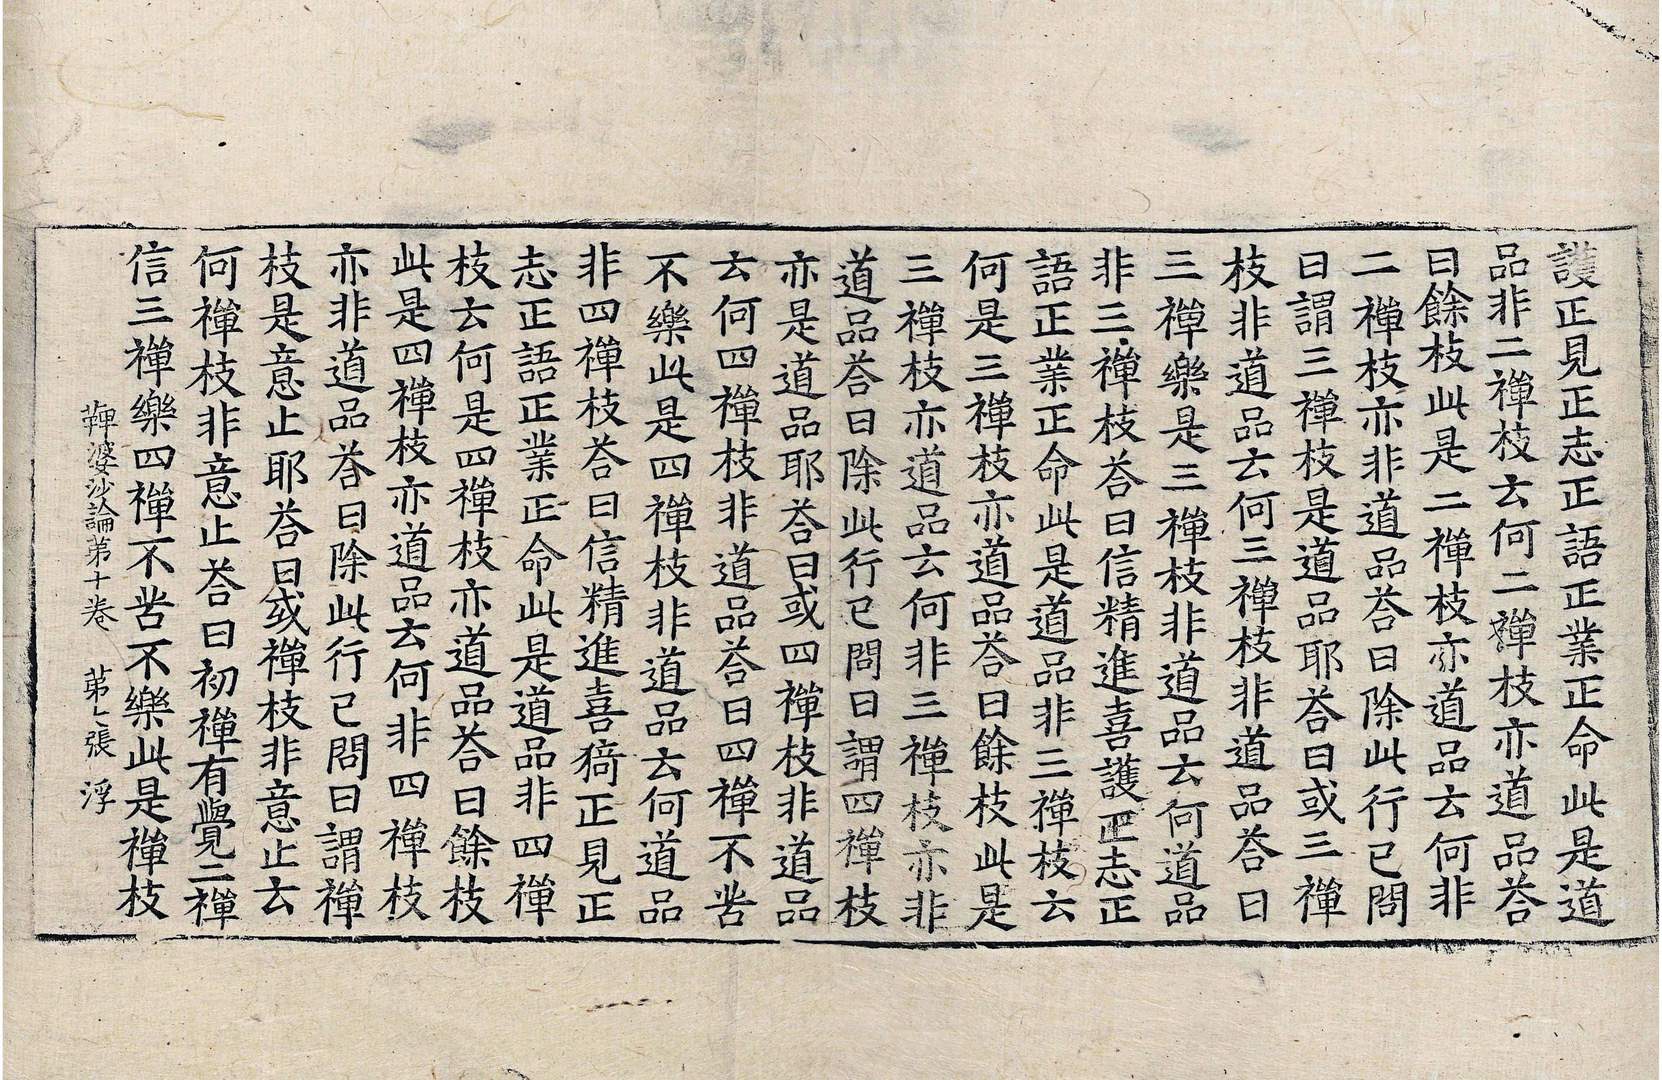 護正見正志正語正業正命此是道
品非二禪枝云何二禪枝亦道品荅
曰餘枝此是二禪枝亦道品云何非
二禪枝亦非道品荅曰除此行已問
曰謂三禪枝是道品耶荅曰或三禪
枝非道品云何三禪枝非道品荅曰
三禪樂是三禪枝非道品云何道品
非三禪枝荅曰信精進喜護正志正
語正業正命此是道品非三禪枝云
何是三禪枝亦道品荅曰餘枝此是
三禪枝亦道品云何非三禪枝亦非
道品荅曰除此行已問曰謂四禪枝
亦是道品耶荅曰或四禪枝非道品
云何四禪枝非道品荅曰四禪不苦
不樂此是四禪枝非道品云何道品
非四禪枝荅曰信精進喜猗正見正
志正語正業正命此是道品非四禪
枝云何是四禪枝亦道品荅曰餘枝
此是四禪枝亦道品云何非四禪枝
亦非道品荅曰除此行已問曰謂禪
枝是意止耶荅曰或禪枝非意止云
何禪枝非意止荅曰初禪有覺二禪
信三禪樂四禪不苦不樂此是禪枝
鞞婆沙論第十卷 第七張 浮